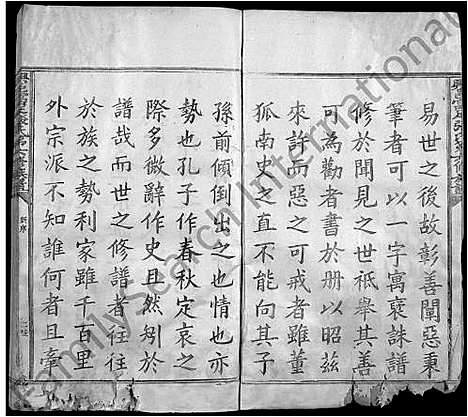 易世之後故彰善闡惡秉
筆者可以一字寓褒誅譜
修於聞見之世祗舉其善
可為勸者書於册以昭茲
來許而惡之可戒者雖董
狐南史之直不能向其子
孫前傾倒出之也情也亦
勢也孔子作春秋定哀之
際多微辭作史且然矧於
譜哉而世之修譜者往往
於族之勢利家雖千百里
外宗派不知誰何者且牽
新序
FamilySearch International